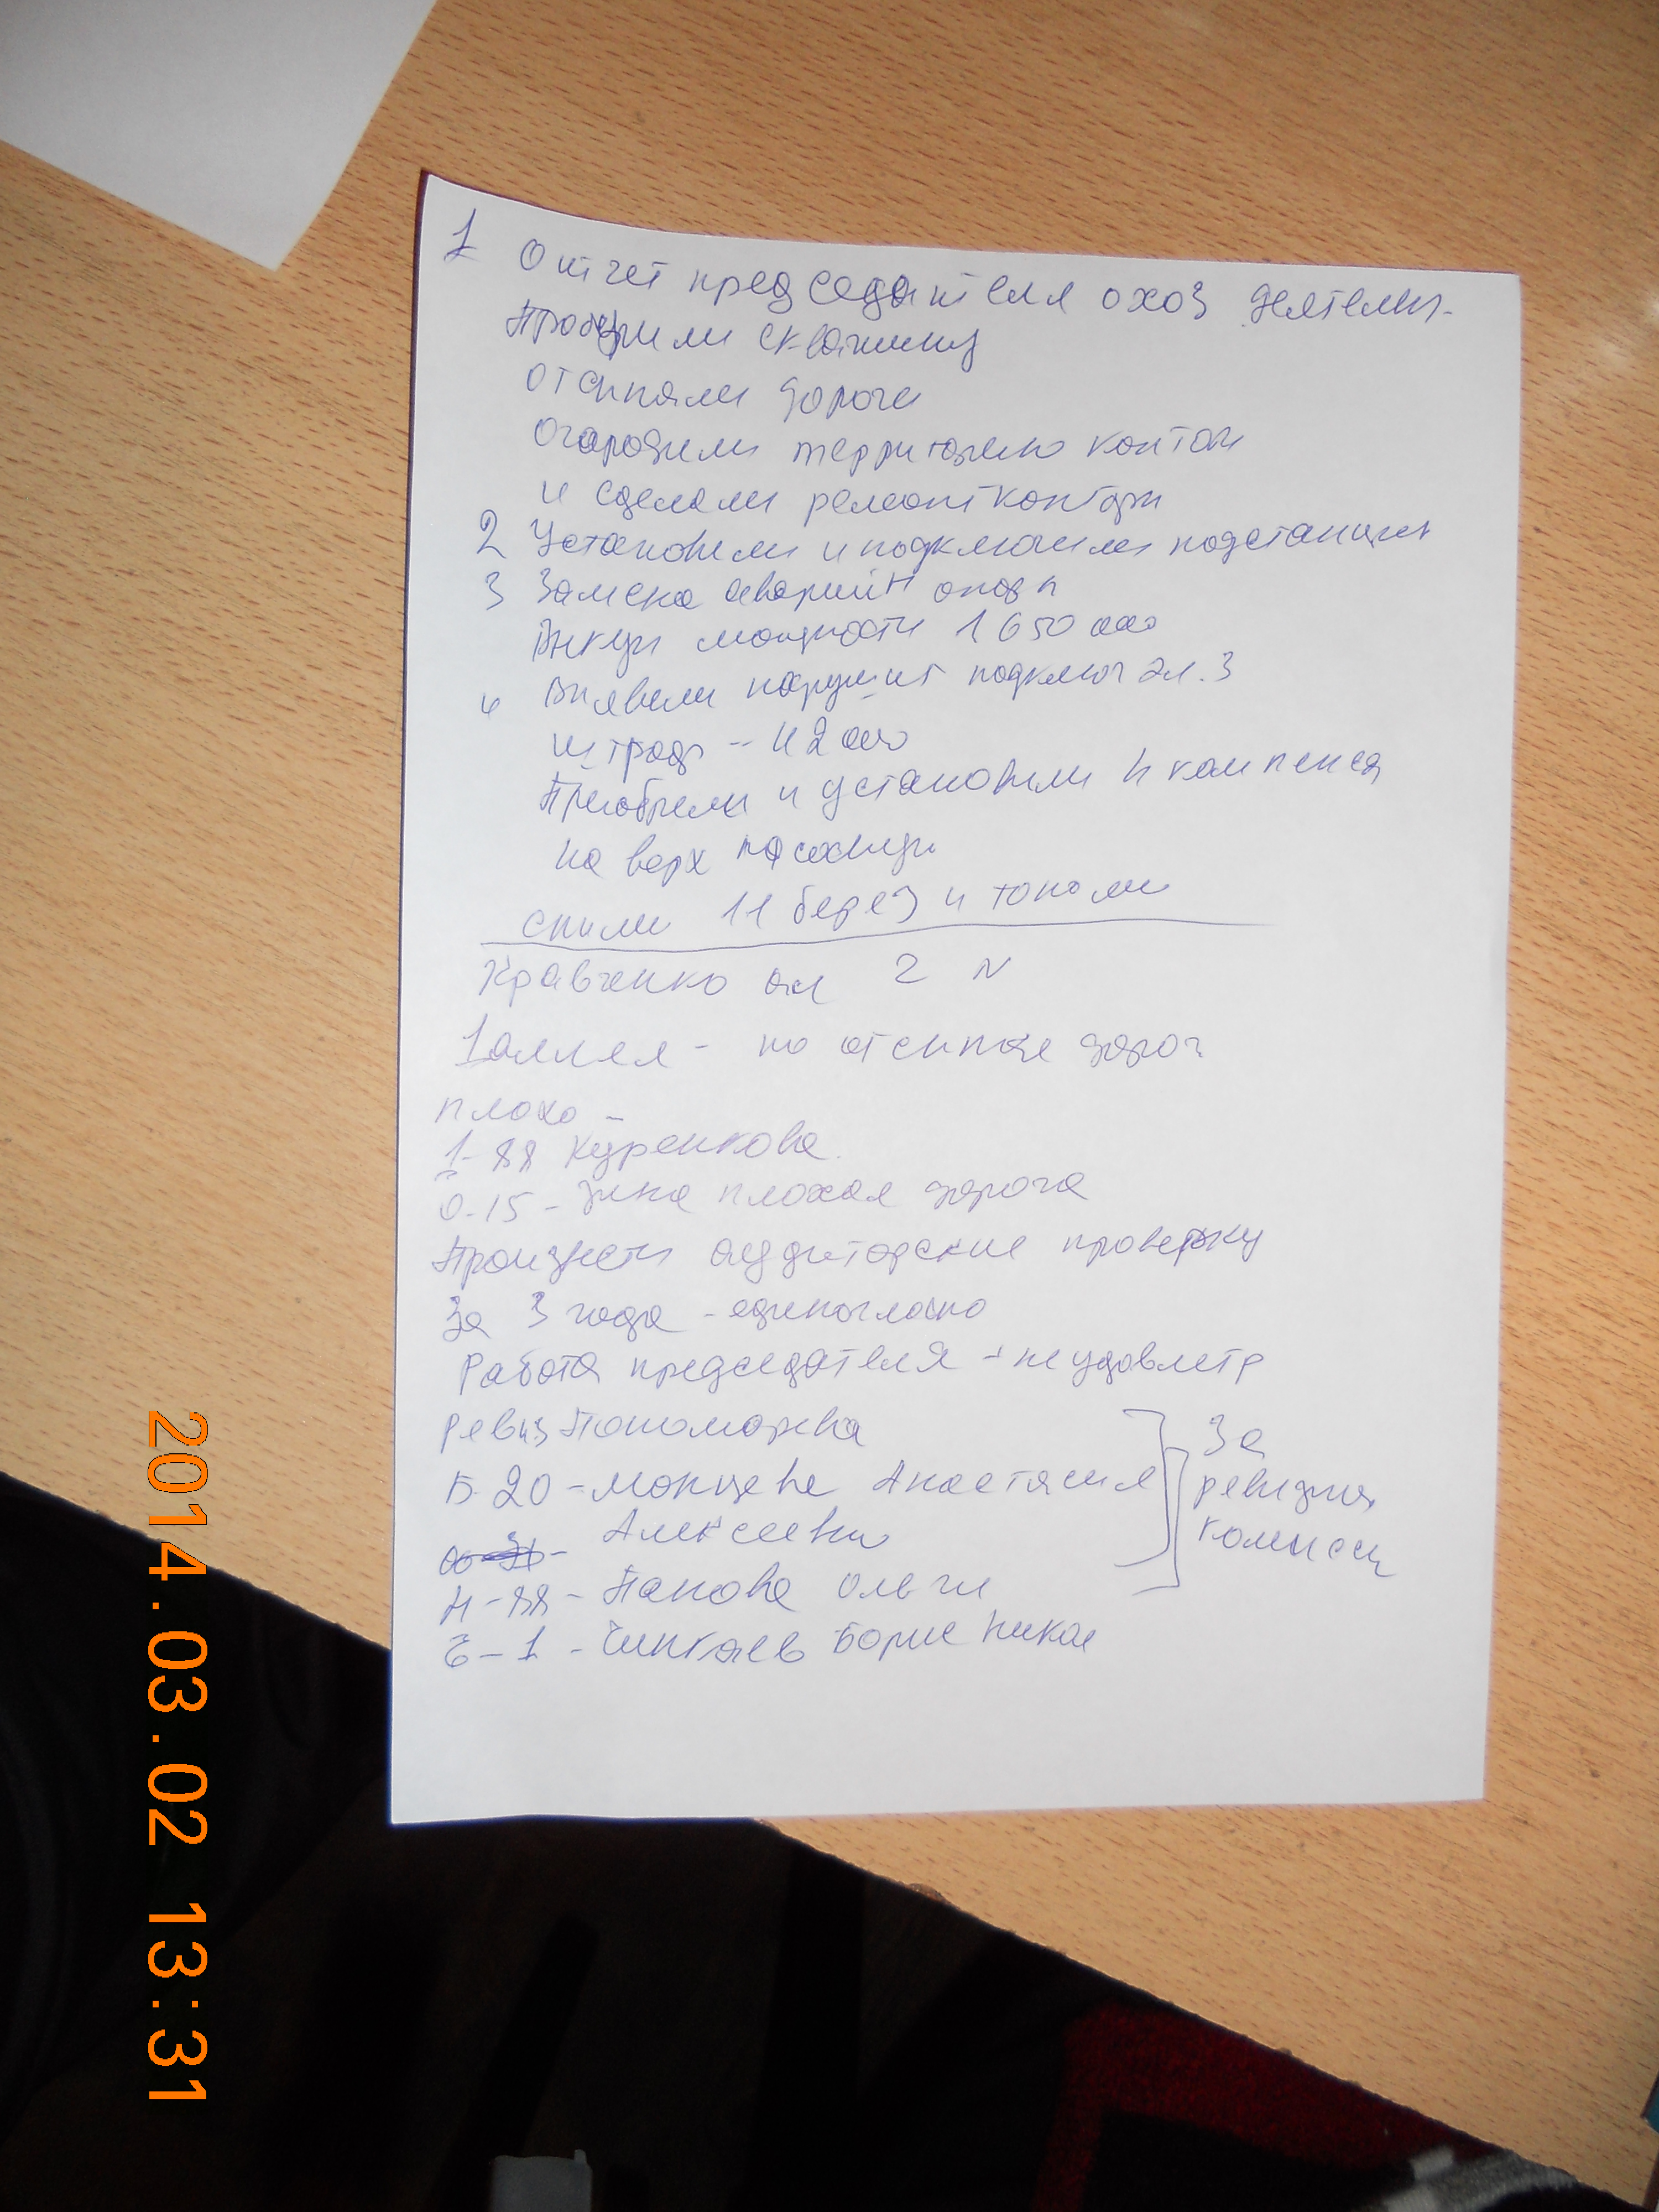 1 Отчет председателя о хоз деятельн.
Пробурили скважину
отсыпали дороги
Огородили территорию контоы
и сделали ремонт конторы
2 Установили и подключили подстанцию
3 Замена аварийн опоры
мощности 1 650 000
4 Выявили наруш подключ эл. 3
штраф - 42 000
Приобрели и установили
на верх
спили 11 берез и тополи
Кравченко 2
1 аллея - по отсыпке дорог
плохо -
1-88 Куренкова
0-15 - плохая дорога
Произвести аудиторские проверку
За 3 года - единогласно
Работа председателя - неудовлетр
Ревиз Пономорева
Б-20 - Анастасия
Алексеевн
Н-88 - Панова Ольги
Б-1 - Борис Никол
За
ревизион
комисси
2014.03.02 13:31